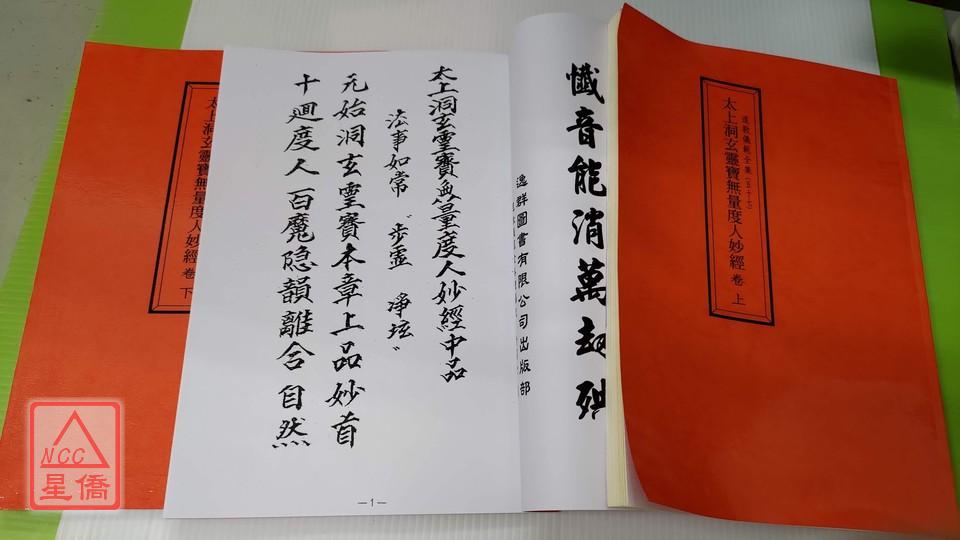 道教儀範全集(五十七)
太上洞玄靈寶無量度人妙經 卷上
懺音能消萬劫
逸群圖書有限公司出版部
太上洞玄靈寶無量度人妙經中品
法事如常〝步虛 淨坛〞
元始洞玄靈寶本章上品妙首
十廻度人百魔隐韻離合自然
—1—
太上洞玄靈寶無量度人妙經 卷下
NCC
星僑